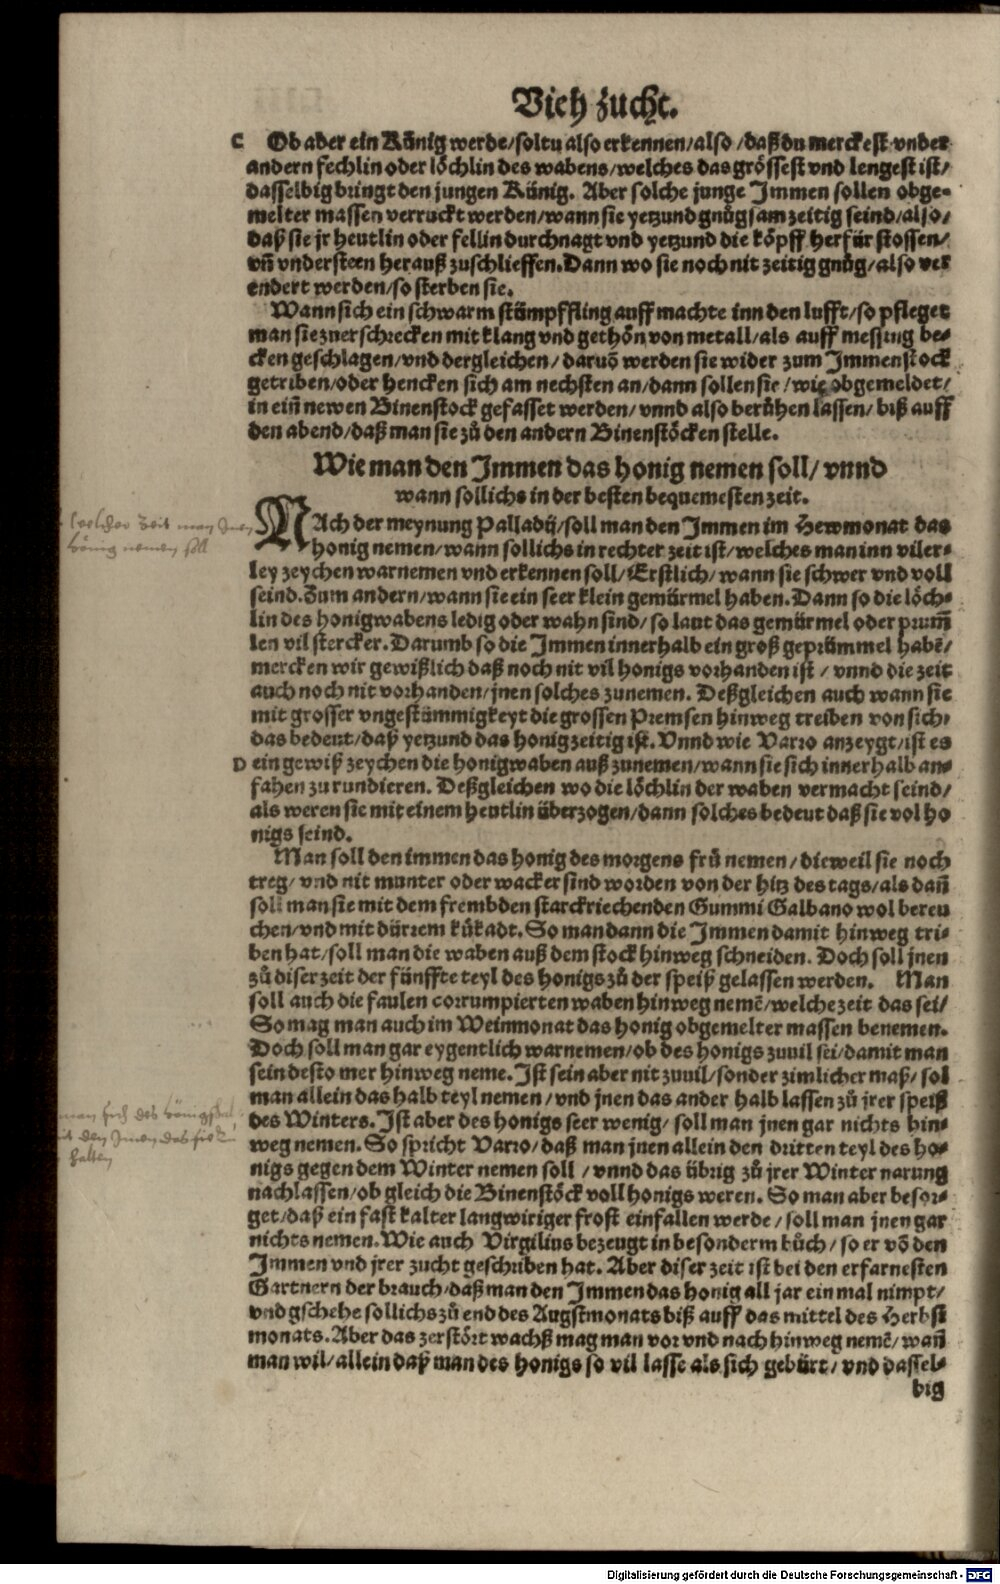 Vieh zucht.
C Ob aber ein Künig werde/soltu also erkennen/also /daß du merckest vnder
andern fechlin oder löchlin des wabens/welches das grössest vnd lengest ist/
dasselbig bringt den jungen Künig. Aber solche junge Immen sollen obge-
melter massen verruckt werden/wann sie yetzund gnůgsam zeitig seind/also/
daß sie jr heutlin oder fellin durchnagt vnd yetzund die köpff herfür stossen/
vñ vndersteen herauß zuschlieffen. Dann wo sie noch nit zeitig gnůg/also ver
endert werden/so sterben sie.
Wann sich ein schwarm stümpffling auff machte inn den lufft/so pfleget
man sie zuerschrecken mit klang vnd gethön von metall/als auff messing be-
cken geschlagen/vnd dergleichen/ daruõ werden sie wider zum Immenstock
getriben/oder hencken sich am nechsten an/dann sollen sie/wie obgemeldet/
in eiñ newen Binenstock gefasset werden/vnnd also berůhen lassen/ biß auff
den abend/daß man sie zů den andern Binenstöcken stelle.
Wie man den Immen das honig nemen soll/ vnnd
wann sollichs in der besten bequemesten zeit.
NAch der meynung Palladij/soll man den Immen im Hewmonat das
honig nemen/wann sollichs in rechter zeit ist/welches man inn viler-
ley zeychen warnemen vnd erkennen soll/Erstlich/wann sie schwer vnd voll
seind. Zum andern/wann sie ein seer klein gemürmel haben. Dann so die löch-
lin des honigwabens ledig oder wahn sind/so laut das gemürmel oder prum̃
len vil stercker. Darumb so die Immen innerhalb ein groß geprümmel habẽ/
mercken wir gewißlich daß noch nit vil honigs vorhanden ist / vnnd die zeit
auch noch nit vorhanden/jnen solches zunemen. Deßgleichen auch wann sie
mit grosser vngestümmigkeyt die grossen Premsen hinweg treiben von sich/
das bedeut/daß yetzund das honig zeitig ist. Vnnd wie Varro anzeygt/ist es
D ein gewiß zeychen die honigwaben auß zunemen/wann sie sich innerhalb an-
fahen zu rundieren. Deßgleichen wo die löchlin der waben vermacht seind/
als weren sie mit einem heutlin überzogen/dann solches bedeut daß sie vol ho
nigs seind.
Man soll den immen das honig des morgens frü nemen/ dieweil sie noch
treg/ vnd nit munter oder wacker sind worden von der hitz des tags/als dañ
soll man sie mit dem frembden starckriechenden Gummi Galbano wol bereu
chen/vnd mit dürrem kükadt. So man dann die Immen damit hinweg tri-
ben hat/soll man die waben auß dem stock hinweg schneiden. Doch soll jnen
zů diser zeit der fünffte teyl des honigs zů der speiß gelassen werden. Man
soll auch die faulen corrumpierten waben hinweg nemẽ/welche zeit das sei/
So mag man auch im Weinmonat das honig obgemelter massen benemen.
Doch soll man gar eygentlich warnemen/ob des honigs zuuil sei/damit man
sein desto mer hinweg neme. Ist sein aber nit zuuil/sonder zimlicher maß/ sol
man allein das halb teyl nemen/ vnd jnen das ander halb lassen zů jrer speiß
des Winters. Ist aber des honigs seer wenig/ soll man jnen gar nichts hin-
weg nemen. So spricht Varro/daß man jnen allein den dritten teyl des ho-
nigs gegen dem Winter nemen soll / vnnd das übrig zů jrer Winter narung
nachlassen/ob gleich die Binenstöck voll honigs weren. So man aber besor-
get/daß ein fast kalter langwiriger frost einfallen werde/soll man jnen gar
nichts nemen. Wie auch Virgilius bezeugt in besonderm bůch/so er võ den
Immen vnd jrer zucht geschriben hat. Aber diser zeit ist bei den erfarnesten
Gartnern der brauch/daß man den Immen das honig all jar ein mal nimpt/
vnd gschehe sollichs zů end des Augstmonats biß auff das mittel des Herbst
monats. Aber das zerstört wachß mag man vor vnd nach hinweg nemẽ/wañ
man wil/allein daß man des honigs so vil lasse als sich gebürt/ vnd dassel-
big
Zeit man
honig nemen soll
Digitalisierung gefördert durch die Deutsche Forschungsgemeinschaft - DFG